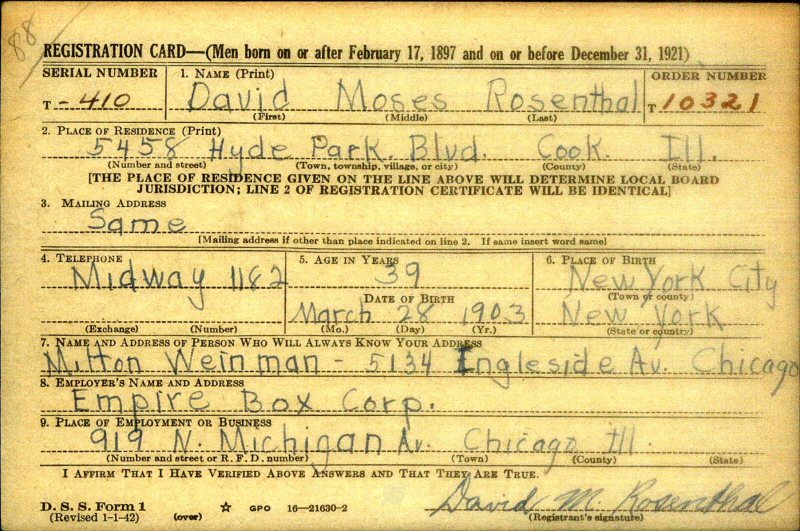 88
REGISTRATION CARD—(Men born on or after February 17, 1897 and on or before December 31, 1921)
SERIAL NUMBER 1. NAME (Print) ORDER NUMBER
T - 410 David Moses Rosenthal T 10321
(First) (Middle) (Last)
2. PLACE OF RESIDENCE (Print)
5458 Hyde Park. Blvd. Cook. Ill.
(Number and street) (Town, township, village, or city) (County) (State)
[THE PLACE OF RESIDENCE GIVEN ON THE LINE ABOVE WILL DETERMINE LOCAL BOARD
JURISDICTION; LINE 2 OF REGISTRATION CERTIFICATE WILL BE IDENTICAL]
3. MAILING ADDRESS
Same
[Mailing address if other than place indicated on line 2. If same insert word same]
4. TELEPHONE 5. AGE IN YEARS 6. PLACE OF BIRTH
Midway 1182 39 New York City
DATE OF BIRTH (Town or county)
March 28 1903 New York
(Exchange) (Number) (Mo.) (Day) (Yr.) (State or country)
7. NAME AND ADDRESS OF PERSON WHO WILL ALWAYS KNOW YOUR ADDRESS
Milton Weinman - 5134 Ingleside Av. Chicago
8. EMPLOYER'S NAME AND ADDRESS
Empire Box Corp.
9. PLACE OF EMPLOYMENT OR BUSINESS
919 N. Michigan Av. Chicago Ill.
(Number and street or R. F. D. number) (Town) (County) (State)
I AFFIRM THAT I HAVE VERIFIED ABOVE ANSWERS AND THAT THEY ARE TRUE.
D. S. S. Form 1 David M. Rosenthal
(Revised 1-1-42) (over) ☆ GPO 16—21630-2 (Registrant's signature)